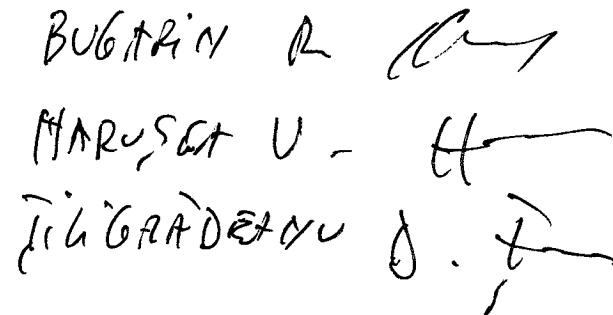 BUGARIN R
MARUȘCA V -
ȚILIGRĂDEANU D.